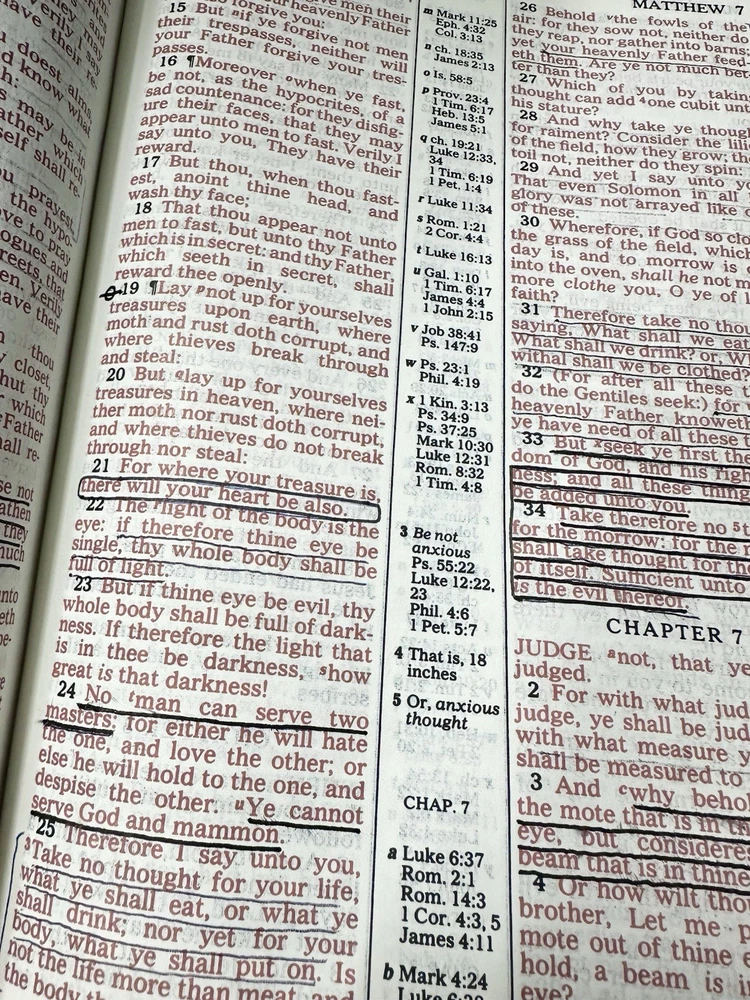 15 But if ye forgive not men
their trespasses, neither will
your Father forgive your tres-
passes.
16 ¶Moreover when ye fast,
be not, as the hypocrites, of a
sad countenance: for they disfig-
ure their faces, that they may
appear unto men to fast. Verily I
say unto you, They have their
reward.
17 But thou, when thou fast-
est, anoint thine head, and
wash thy face;
18 That thou appear not unto
men to fast, but unto thy Father
which is in secret: and thy Father,
which seeth in secret, shall
reward thee openly.
19 ¶Lay not up for yourselves
treasures upon earth, where
moth and rust doth corrupt, and
where thieves break through
and steal:
20 But lay up for yourselves
treasures in heaven, where nei-
ther moth nor rust doth corrupt,
and where thieves do not break
through nor steal:
21 For where your treasure is,
there will your heart be also.
22 The light of the body is the
eye: if therefore thine eye be
single, thy whole body shall be
full of light.
23 But if thine eye be evil, thy
whole body shall be full of dark-
ness. If therefore the light that
is in thee be darkness, show
great is that darkness!
24 No man can serve two
masters: for either he will hate
the one, and love the other; or
else he will hold to the one, and
despise the other. Ye cannot
serve God and mammon.
25 Therefore I say unto you,
Take no thought for your life,
what ye shall eat, or what ye
shall drink; nor yet for your
body, what ye shall put on. Is
not the life more than meat, and
the body
m Mark 11:25
Eph. 4:32
Col. 3:13
n ch. 18:35
James 2:13
o Is. 58:5
p Prov. 23:4
1 Tim. 6:17
Heb. 13:5
James 5:1
q ch. 19:21
Luke 12:33,
34
1 Tim. 6:19
1 Pet. 1:4
r Luke 11:34
s Rom. 1:21
2 Cor. 4:4
t Luke 16:13
u Gal. 1:10
1 Tim. 6:17
James 4:4
1 John 2:15
v Job 38:41
Ps. 147:9
w Ps. 23:1
Phil. 4:19
x 1 Kin. 3:13
Ps. 34:9
Ps. 37:25
Mark 10:30
Luke 12:31
Rom. 8:32
1 Tim. 4:8
3 Be not
anxious
Ps. 55:22
Luke 12:22,
23
Phil. 4:6
1 Pet. 5:7
4 That is, 18
inches
5 Or, anxious
thought
CHAP. 7
a Luke 6:37
Rom. 2:1
Rom. 14:3
1 Cor. 4:3, 5
James 4:11
b Mark 4:24
MATTHEW 7
26 Behold the fowls of the
air: for they sow not, neither do
they reap, nor gather into barns
yet your heavenly Father feed-
eth them. Are ye not much bet-
ter than they?
27 Which of you by taking
thought can add one cubit unto
his stature?
28 And why take ye
for raiment? Consider the
of the field, how they grow;
toil not, neither do they spin:
29 And yet I say unto
That even Solomon in all
glory was not arrayed like
of these.
30 Wherefore, if God so
the grass of the field, which
day is, and to morrow is
into the oven, shall he not
more clothe you, O ye of
faith?
31 Therefore take no
saying, What shall we eat
What shall we drink? or,
withal shall we be clothed?
32 (For after all these
do the Gentiles seek:) for
heavenly Father knoweth
ye have need of all these
33 But seek ye first the
dom of God, and his
ness; and all these
be added unto you.
34 Take therefore no
for the morrow: for the
shall take thought for
of itself. Sufficient unto
is the evil thereof.
CHAPTER 7
JUDGE not, that ye
judged.
2 For with what
judge, ye shall be
with what measure
shall be measured to
3 And why
the mote that is in
eye, but
beam that is in thine
4 Or how wilt
brother, Let me
mote out of thine
hold, a beam is
eye?